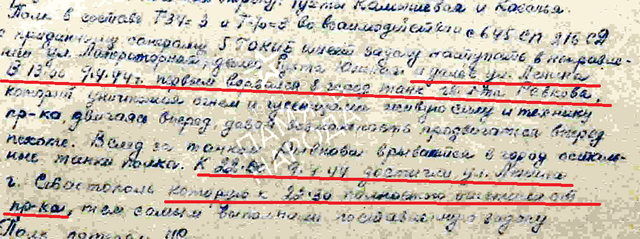 бухты Камышевая и Казачья.
Полк в составе Т-34= 3 и Т-70=3 во взаимодействии с 645 СП 216 СД
с приданными саперами 5 имеет задачу наступать в направле-
нии ул. бухта Южная и далее ул. Ленина
В 13.00 9.5.44 г. первым ворвался в город танк гв. л-та Ревкова,
который уничтожая огнем и гусеницами живую силу и технику
пр-ка, двигаясь вперед, давая возможность продвигатся вперед
пехоте. Вслед за танком врывались в город осталь-
ные танки полка. К 22.00 9.5.44 достигли ул. Ленина
г. Севастополь которую к 22.30 полностью очистили от
пр-ка, тем самым выполнили поставленную задачу